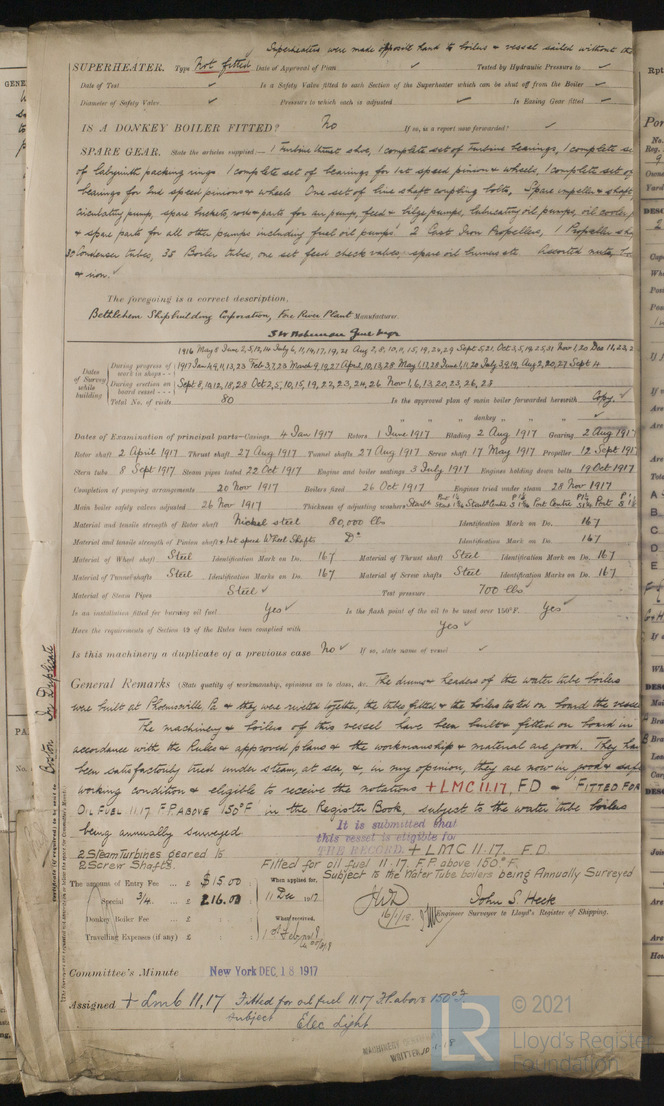 Superheaters were made opposit hand to boilers & vessel sailed without the
SUPERHEATER. Type Not fitted Date of Approval of Plan ✓ Tested by Hydraulic Pressure to ✓
Date of Test ✓ Is a Safety Valve fitted to each Section of the Superheater which can be shut off from the Boiler ✓
Diameter of Safety Valve ✓ Pressure to which each is adjusted ✓ Is Easing Gear fitted ✓
IS A DONKEY BOILER FITTED? No If so, is a report now forwarded? ✓
SPARE GEAR. State the articles supplied:— 1 Turbine thrust shoe, 1 complete set of Turbine bearings, 1 complete se
of labyrinth packing rings 1 complete set of bearings for 1st speed pinion & wheels, 1 complete set of
bearings for 2nd speed pinions & wheels One set of line shaft coupling bolts, Spare impeller & shaft
circulating pump, spare buckets, rods & parts for air pump, feed & bilge pumps, lubricating oil pumps, oil cooler p
& spare parts for all other pumps including fuel oil pumps. 2 Cast Iron Propellers, 1 Propeller sha
Condenser tubes, 35 Boiler tubes, one set feed check valves spare oil burners etc Assorted nuts, bo
& iron. ✓
The foregoing is a correct description,
Bethlehem Shipbuilding Corporation, Fore River Plant Manufacturer.
Dates of Survey while building
During progress of work in shops - - 1916 May 8 June 2, 5, 12, 14 July 6, 11, 14, 17, 19, 21 Aug 2, 8, 10, 11, 15, 19, 24, 29 Sept 5, 21, Oct 3, 5, 19, 25, 31 Nov 1, 20 Dec 11, 23, 2
1917 Jan 4, 9, 11, 13, 23 Feb 3, 7, 23 March 9, 19, 27 April 10, 13, 28 May 1, 11, 28 June 1, 11, 20 July 3, 9, 19, Aug 2, 20, 27 Sept 4
During erection on board vessel - - - Sept 8, 10, 12, 18, 28 Oct 2, 5, 10, 15, 19, 22, 23, 24, 26 Nov 1, 6, 13, 20, 23, 26, 28
Total No. of visits 80 Is the approved plan of main boiler forwarded herewith Copy ✓
" " " donkey " " " ✓
Dates of Examination of principal parts—Casings 4 Jan 1917 Rotors 1 June 1917 Blading 2 Aug 1917 Gearing 2 Aug 1917
Rotor shaft 2 April 1917 Thrust shaft 27 Aug 1917 Tunnel shafts 27 Aug 1917 Screw shaft 17 May 1917 Propeller 12 Sept 1917
Stern tube 8 Sept 1917 Steam pipes tested 22 Oct 1917 Engine and boiler seatings 3 July 1917 Engines holding down bolts 19 Oct 1917
Completion of pumping arrangements 20 Nov 1917 Boilers fixed 26 Oct 1917 Engines tried under steam 28 Nov 1917
Main boiler safety valves adjusted 26 Nov 1917 Thickness of adjusting washers
Material and tensile strength of Rotor shaft Nickel steel 80,000 lbs Identification Mark on Do. 167
Material and tensile strength of Pinion shaft & 1st speed Wheel Shafts Do Identification Mark on Do. 167
Material of Wheel shaft Steel Identification Mark on Do. 167 Material of Thrust shaft Steel Identification Mark on Do. 167
Material of Tunnel shafts Steel Identification Marks on Do. 167 Material of Screw shafts Steel Identification Marks on Do. 167
Material of Steam Pipes Steel ✓ Test pressure 700 lbs ✓
Is an installation fitted for burning oil fuel Yes ✓ Is the flash point of the oil to be used over 150°F. Yes ✓
Have the requirements of Section 49 of the Rules been complied with Yes ✓
Is this machinery a duplicate of a previous case No ✓ If so, state name of vessel ✓
General Remarks (State quality of workmanship, opinions as to class, &c. The drums & headers of the water tube boilers
were built at Phoenixville, Pa & they were riveted together, the tubes fitted & the boilers tested on board the vesse
The machinery & boilers of this vessel have been built & fitted on board in
accordance with the Rules & approved plans & the workmanship & material are good. They ha
been satisfactorily tried under steam, at sea, &, in my opinion, they are now in good & safe
working condition & eligible to receive the notations + LMC 11.17, FD & FITTED FOR
OIL FUEL 11.17 F.P. ABOVE 150°F in the Register Book subject to the water tube boilers
being annually surveyed
It is submitted that
this vessel is eligible for
THE RECORD. + LMC 11.17. F.D.
2 Steam Turbines geared to
2 Screw Shafts.
Fitted for oil fuel 11.17. F.P. above 150°F.
Subject to the Water Tube boilers being Annually Surveyed
The amount of Entry Fee ... £ $15.00 When applied for,
Special 3/4. ... £ 216.00 11 Dec 1917
Donkey Boiler Fee ... £ When received,
Travelling Expenses (if any) £
16/1/18.
John S. Heck
Engineer Surveyor to Lloyd's Register of Shipping.
Committee's Minute New York DEC. 18 1917
Assigned + LMC 11.17 Fitted for oil fuel 11.17 F.P. above 150°F.
Subject Elec Light
MACHINERY
WRITTEN
Boston In Duplicate
© 2021
LR
Lloyd's Register
Foundation